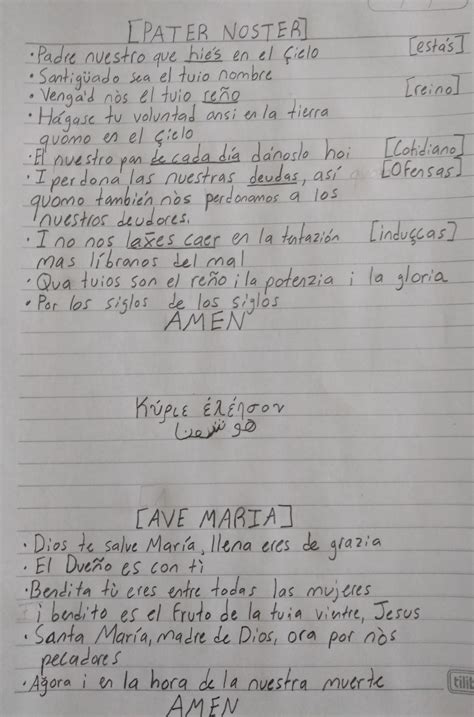 [PATER NOSTER]
• Padre nuestro que hiés en el çielo [estás]
• Santigüado sea el tuio nombre
• Venga'd nòs el tuio reño [reino]
• Hágase tu voluntad ansi en la tierra
quomo en el çielo
• El nuestro pan de cada día dánoslo hoi [Cotidiano]
• I perdona las nuestras deudas, así [Ofensas]
quomo también nòs perdonamos a los
nuestros deudores.
• I no nos laxes caer en la tentazión [indusças]
mas líbranos del mal
• Qua tuios son el reño i la potenzia i la gloria
• Por los siglos de los siglos
AMEN
Κύριε ἐλέησον
هوشعنا
[AVE MARIA]
• Dios te salve María, llena eres de grazia
• El Dueño es con tì
• Bendita tù eres entre todas las mujeres
i bendito es el fruto de la tuia vientre, Jesus
• Santa María, madre de Dios, ora por nòs
pecadores
• Agora i en la hora de la nuestra muerte
AMEN
tilit